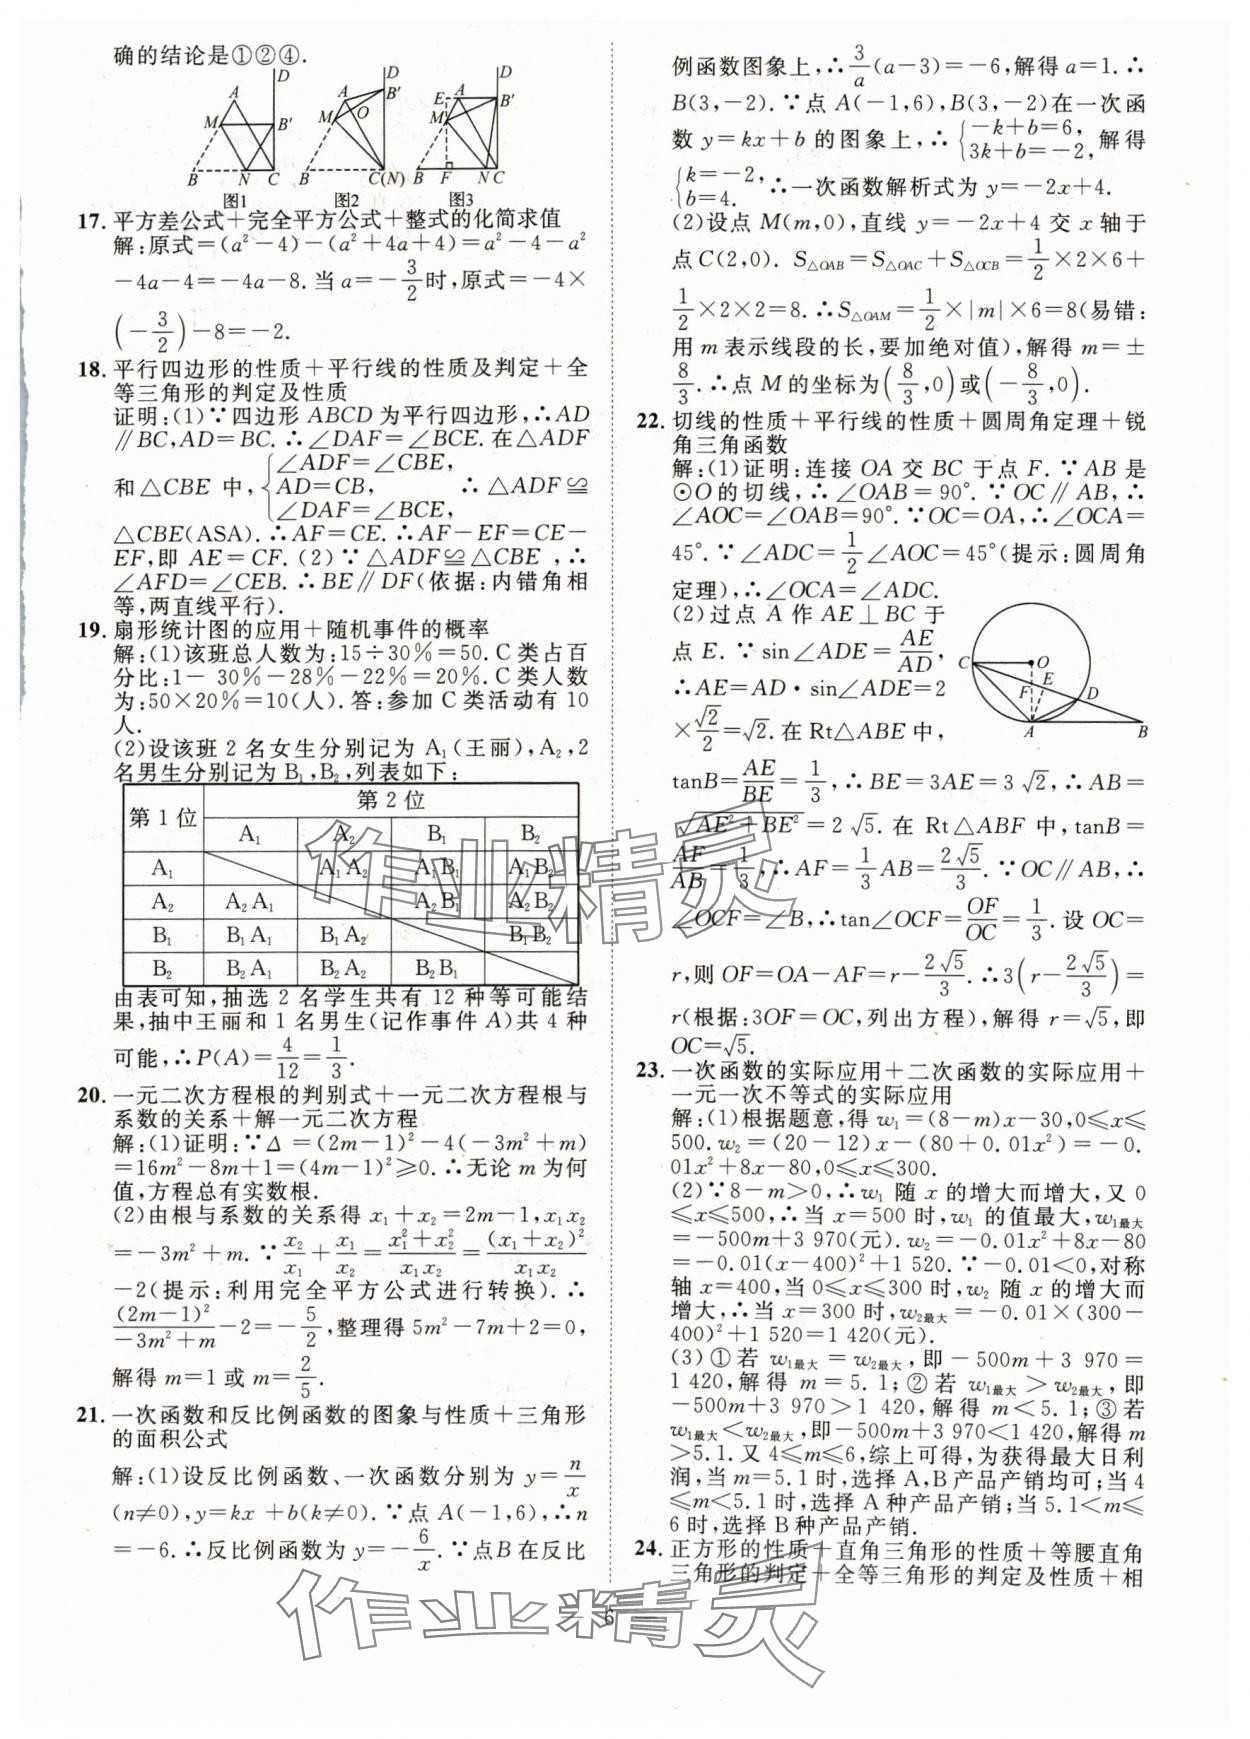 确的结论是①②④.
D
A
M
B′
B
N
C
图1
D
A
B′
O
M
B
C(N)
图2
D
E
A
B′
M
B
F
N
C
图3
17. 平方差公式＋完全平方公式＋整式的化简求值
解:原式＝(a²－4)－(a²＋4a＋4)＝a²－4－a²
－4a－4＝－4a－8. 当 a＝－3/2时,原式＝－4×
(－3/2)－8＝－2.
18. 平行四边形的性质＋平行线的性质及判定＋全
等三角形的判定及性质
证明:(1)∵四边形 ABCD 为平行四边形,∴AD
∥BC,AD＝BC. ∴∠DAF＝∠BCE. 在△ADF
和△CBE 中, {∠ADF＝∠CBE, AD＝CB, ∠DAF＝∠BCE, ∴△ADF≌
△CBE(ASA). ∴AF＝CE. ∴AF－EF＝CE－
EF,即 AE＝CF. (2)∵△ADF≌△CBE ,∴
∠AFD＝∠CEB. ∴BE∥DF(依据:内错角相
等,两直线平行).
19. 扇形统计图的应用＋随机事件的概率
解:(1)该班总人数为:15÷30％＝50. C 类占百
分比:1－30％－28％－22％＝20％. C 类人数
为:50×20％＝10(人). 答:参加 C 类活动有 10
人.
(2)设该班 2 名女生分别记为 A₁(王丽),A₂,2
名男生分别记为 B₁,B₂,列表如下:
第 1 位 第 2 位
A₁ A₂ B₁ B₂
A₁ A₁A₂ A₁B₁ A₁B₂
A₂ A₂A₁ A₂B₁ A₂B₂
B₁ B₁A₁ B₁A₂ B₁B₂
B₂ B₂A₁ B₂A₂ B₂B₁
由表可知,抽选 2 名学生共有 12 种等可能结
果,抽中王丽和 1 名男生(记作事件 A)共 4 种
可能,∴P(A)＝4/12＝1/3.
20. 一元二次方程根的判别式＋一元二次方程根与
系数的关系＋解一元二次方程
解:(1)证明:∵Δ＝(2m－1)²－4(－3m²＋m)
＝16m²－8m＋1＝(4m－1)²≥0. ∴无论 m 为何
值,方程总有实数根.
(2)由根与系数的关系得 x₁＋x₂＝2m－1,x₁x₂
＝－3m²＋m. ∵x₂/x₁＋x₁/x₂＝(x₁²＋x₂²)/(x₁x₂)＝(x₁＋x₂)²/(x₁x₂)
－2(提示:利用完全平方公式进行转换). ∴
(2m－1)²/(－3m²＋m)－2＝－5/2,整理得 5m²－7m＋2＝0,
解得 m＝1 或 m＝2/5.
21. 一次函数和反比例函数的图象与性质＋三角形
的面积公式
解:(1)设反比例函数、一次函数分别为 y＝n/x
(n≠0),y＝kx＋b(k≠0). ∵点 A(－1,6),∴n
＝－6. ∴反比例函数为 y＝－6/x. ∵点B在反比
例函数图象上,∴3/a(a－3)＝－6,解得 a＝1. ∴
B(3,－2). ∵点 A(－1,6),B(3,－2)在一次函
数 y＝kx＋b 的图象上,∴{－k＋b＝6, 3k＋b＝－2, 解得
{k＝－2, b＝4. ∴一次函数解析式为 y＝－2x＋4.
(2)设点 M(m,0),直线 y＝－2x＋4 交 x 轴于
点 C(2,0). S△OAB＝S△OAC＋S△OCB＝1/2×2×6＋
1/2×2×2＝8. ∴S△OAM＝1/2×|m|×6＝8(易错:
用 m 表示线段的长,要加绝对值),解得 m＝±
8/3. ∴点 M 的坐标为(8/3,0)或(－8/3,0).
22. 切线的性质＋平行线的性质＋圆周角定理＋锐
角三角函数
解:(1)证明:连接 OA 交 BC 于点 F. ∵AB 是
⊙O的切线,∴∠OAB＝90°. ∵OC∥AB,∴
∠AOC＝∠OAB＝90°. ∵OC＝OA,∴∠OCA＝
45°. ∵∠ADC＝1/2∠AOC＝45°(提示:圆周角
定理),∴∠OCA＝∠ADC.
(2)过点 A 作 AE⊥BC 于
点 E. ∵sin∠ADE＝AE/AD,
∴AE＝AD·sin∠ADE＝2
×√2/2＝√2. 在 Rt△ABE 中,
C
O
E
F
D
A
B
tanB＝AE/BE＝1/3,∴BE＝3AE＝3√2,∴AB＝
√(AE²＋BE²)＝2√5. 在 Rt△ABF 中,tanB＝
AF/AB＝1/3,∴AF＝1/3AB＝2√5/3. ∵OC∥AB,∴
∠OCF＝∠B,∴tan∠OCF＝OF/OC＝1/3. 设 OC＝
r,则 OF＝OA－AF＝r－2√5/3. ∴3(r－2√5/3)＝
r(根据:3OF＝OC,列出方程),解得 r＝√5,即
OC＝√5.
23. 一次函数的实际应用＋二次函数的实际应用＋
一元一次不等式的实际应用
解:(1)根据题意,得 w₁＝(8－m)x－30,0≤x≤
500. w₂＝(20－12)x－(80＋0.01x²)＝－0.
01x²＋8x－80,0≤x≤300.
(2)∵8－m＞0,∴w₁ 随 x 的增大而增大,又 0
≤x≤500,∴当 x＝500 时,w₁ 的值最大,w₁最大
＝－500m＋3 970(元). w₂＝－0.01x²＋8x－80
＝－0.01(x－400)²＋1 520. ∵－0.01＜0,对称
轴 x＝400,当 0≤x≤300 时,w₂ 随 x 的增大而
增大,∴当 x＝300 时,w₂最大＝－0.01×(300－
400)²＋1 520＝1 420(元).
(3)①若 w₁最大＝w₂最大,即－500m＋3 970＝
1 420,解得 m＝5.1;②若 w₁最大＞w₂最大,即
－500m＋3 970＞1 420,解得 m＜5.1;③若
w₁最大＜w₂最大,即－500m＋3 970＜1 420,解得 m
＞5.1. 又 4≤m≤6,综上可得,为获得最大日利
润,当 m＝5.1 时,选择 A,B 产品产销均可;当 4
≤m＜5.1 时,选择 A 种产品产销;当 5.1＜m≤
6 时,选择 B种产品产销.
24. 正方形的性质＋直角三角形的性质＋等腰直角
三角形的判定＋全等三角形的判定及性质＋相
6
作业精灵
作业精灵